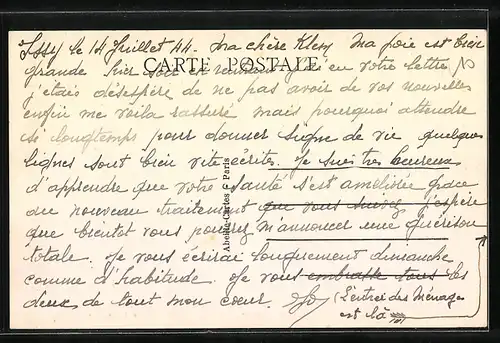 Issy le 14 Juillet 44. Ma chère Klem Ma joie est bien
CARTE POSTALE
grande hier soir en rentrant j'ai eu votre lettre
j'etais désespéré de ne pas avoir de vos nouvelles
enfin me voila rassuré mais pourquoi attendre
si longtemps pour donner signe de vie quelques
lignes sont bien vite écrites. Je suis très heureux
d'apprendre que votre santé s'est améliorée grace
au nouveau traitement que vous suivez j'espère
que bientot vous pourrez m'annoncer une guérison
totale. Je vous écrirai longuement dimanche
comme d'habitude. Je vous embrasse tous les
deux de tout mon coeur. (L'entrée des Ménages
est là
Abeille-Cartes - Paris